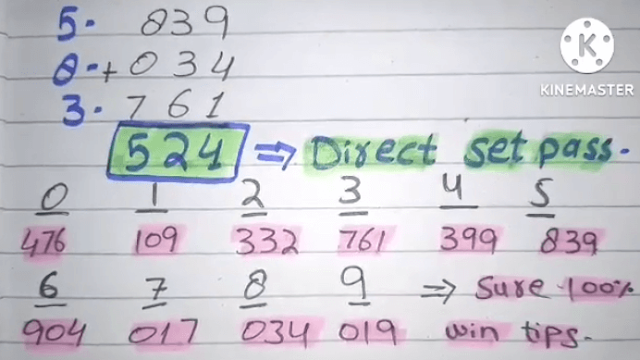 5. 839
8. + 034
3. 761
524 ⇒ Direct set pass.
0 1 2 3 4 5
476 109 332 761 399 839
6 7 8 9 ⇒ Sure 100%
904 017 034 019 win tips.
K
KINEMASTER